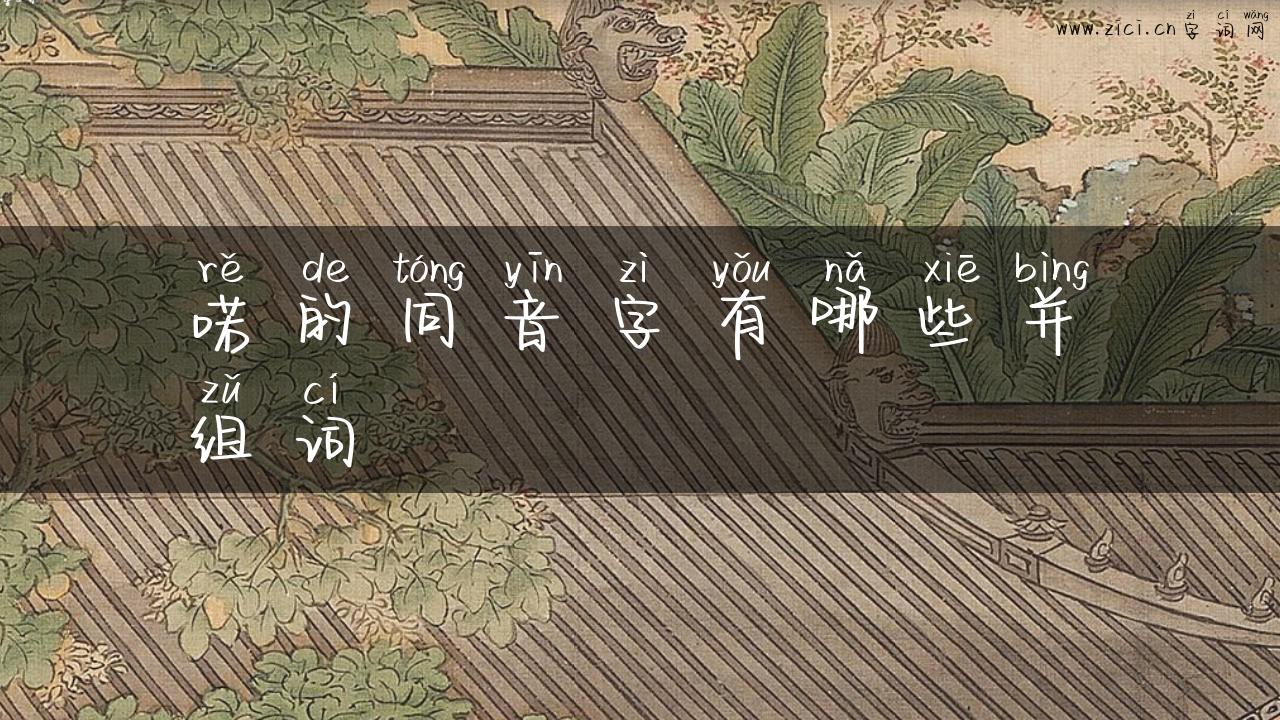 zì cí wǎng
www.zici.cn 字 词 网
rě de tóng yīn zì yǒu nǎ xiē bìng
喏 的 同 音 字 有 哪 些 并
zǔ cí
组 词